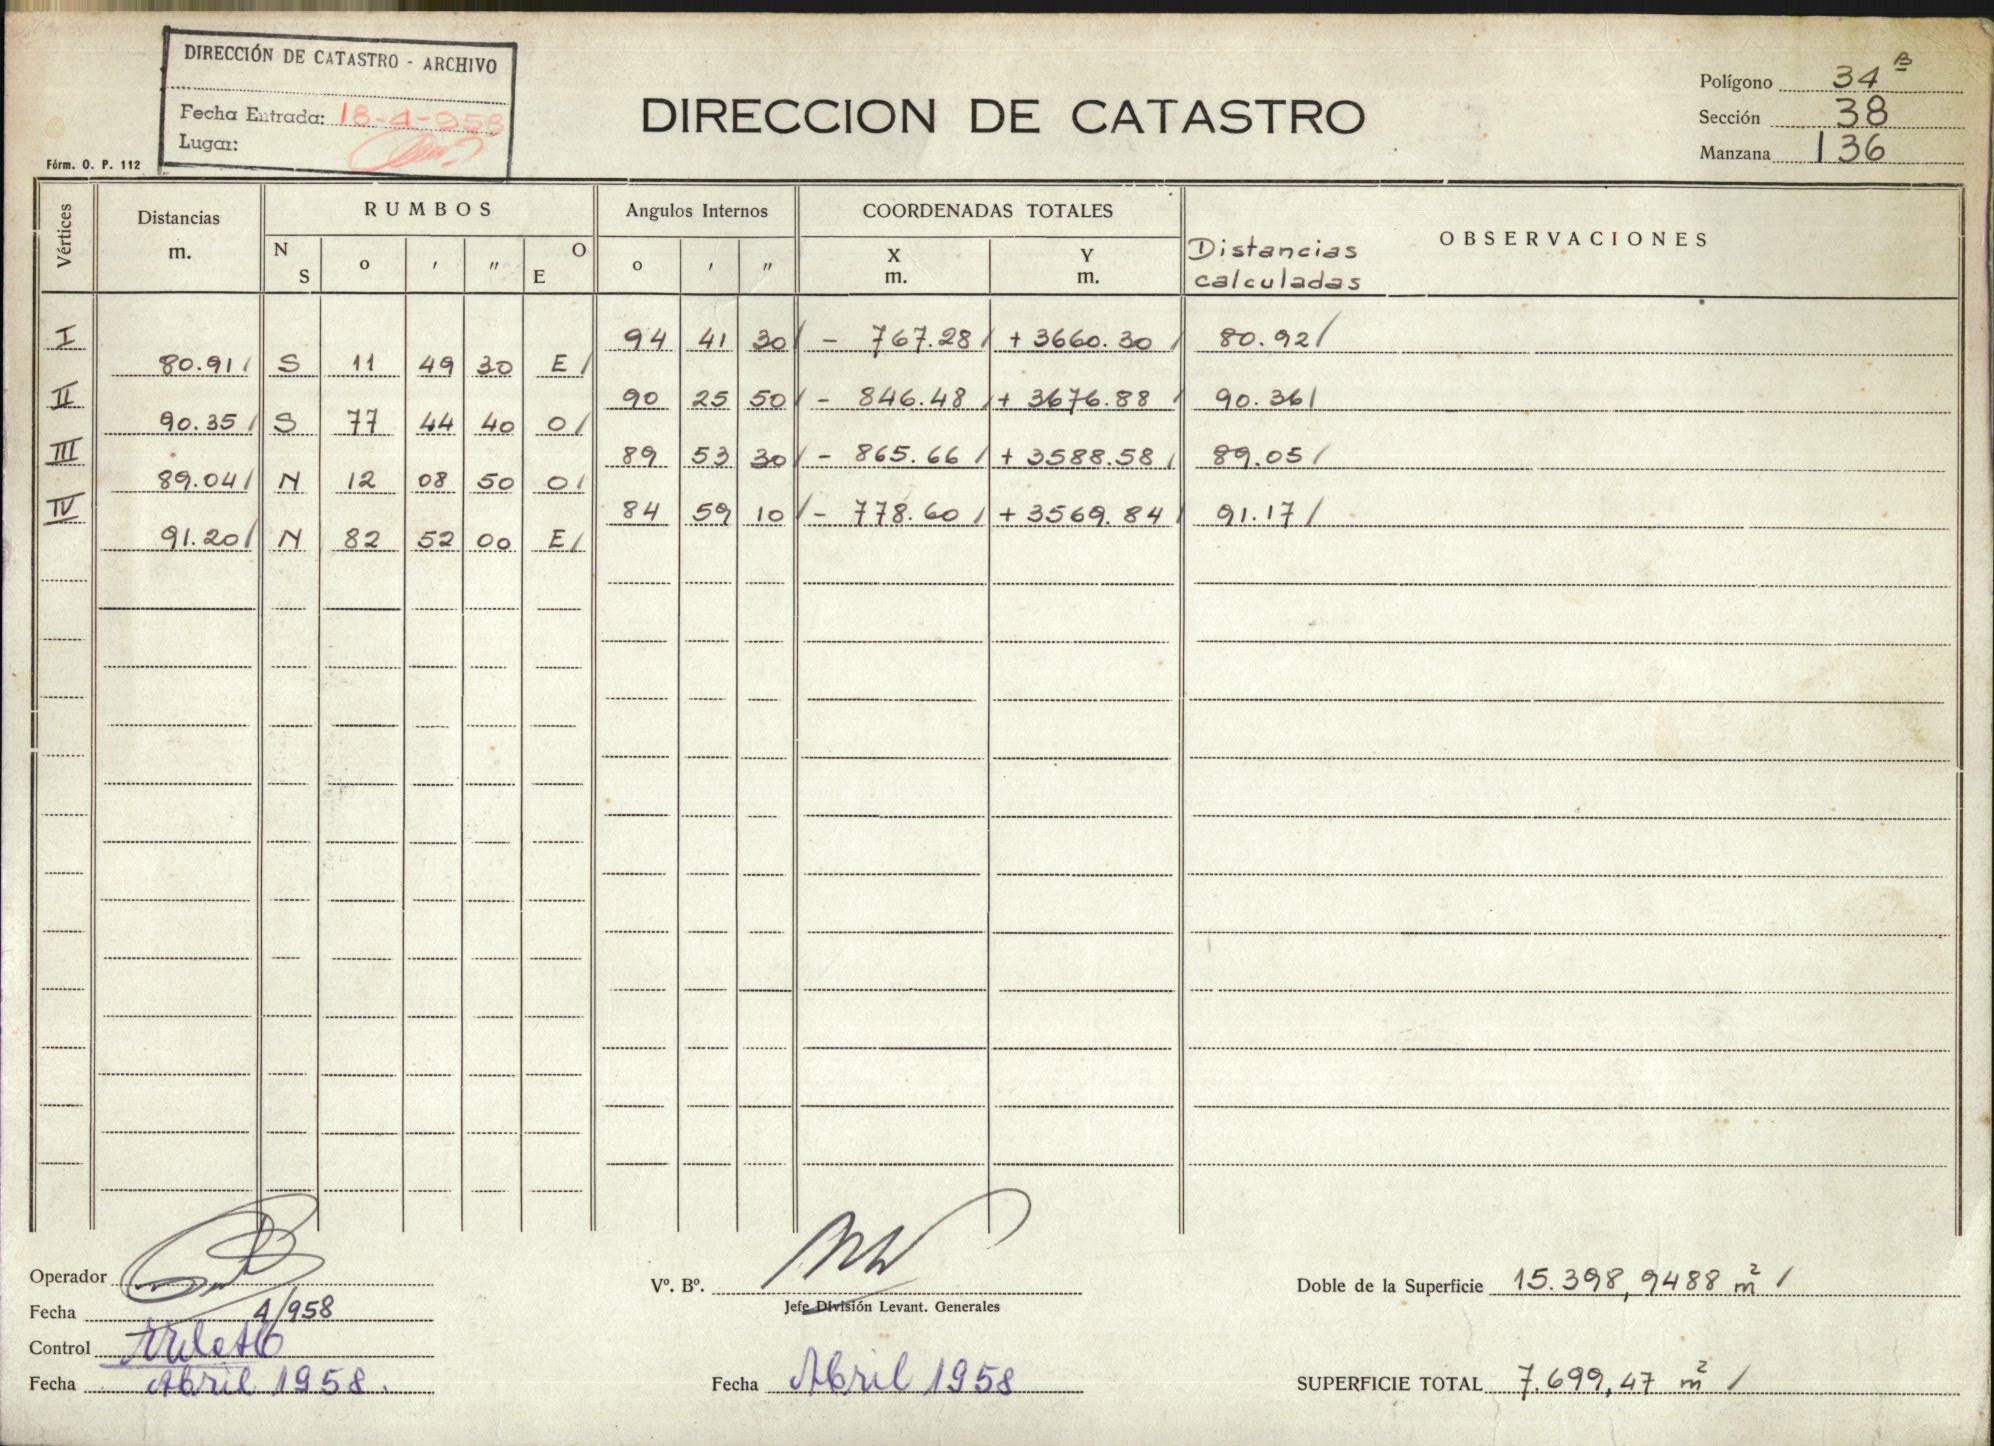 DIRECCIÓN DE CATASTRO - ARCHIVO
Fecha Entrada: 18-4-958
Lugar:
Fórm. O. P. 112
DIRECCION DE CATASTRO
Polígono 34 B
Sección 38
Manzana 136
Vértices
Distancias
m.
RUMBOS
N S o ' " O E
Angulos Internos
o ' "
COORDENADAS TOTALES
X m. Y m.
Distancias calculadas
OBSERVACIONES
I 94 41 30/ - 767.28/ + 3660.30/ 80.92/
80.91/ S 11 49 30 E/
II 90 25 50/ - 846.48/ + 3676.88/ 90.36/
90.35/ S 77 44 40 O/
III 89 53 30/ - 865.66/ + 3588.58/ 89.05/
89.04/ N 12 08 50 O/
IV 84 59 10/ - 778.60/ + 3569.84/ 91.17/
91.20/ N 82 52 00 E/
Operador
Fecha 4/958
Control
Fecha Abril 1958.
Vº. Bº.
Jefe División Levant. Generales
Fecha Abril 1958
Doble de la Superficie 15.398,9488 m² /
SUPERFICIE TOTAL 7.699,47 m² /